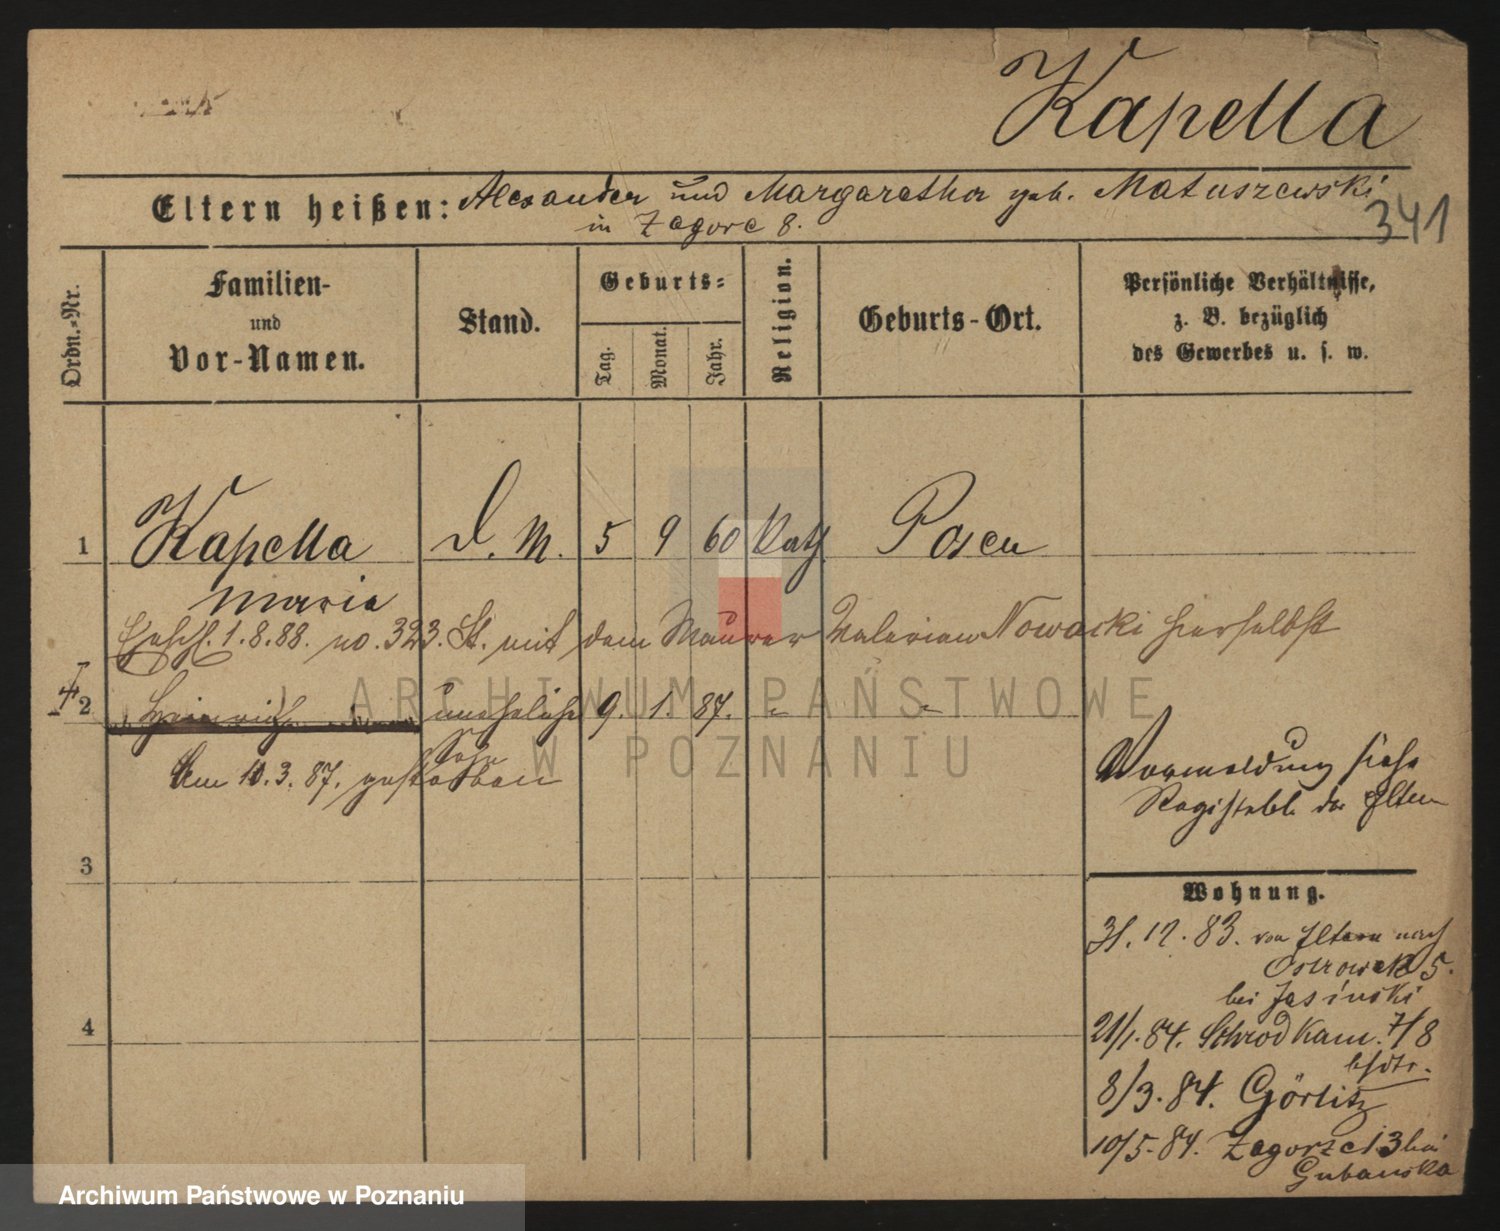 Kapella
Eltern heißen: Alexander und Margaretha geb. Matuszewski
in Zagorze 8.
341
Ordn.-Nr.
Familien-
und
Vor-Namen.
Stand.
Geburts-
Tag.
Monat.
Jahr.
Religion.
Geburts-Ort.
Persönliche Verhältnisse,
z. B. bezüglich
des Gewerbes u. s. w.
1 Kapella D. M. 5 9 60 Kath. Posen
Maria
Ehesch. 1.8.88. no. 323. St. mit dem Maurer Valerian Nowacki hierselbst
2 Heinrich unehelicher 9. 1. 87. " "
Sohn
Am 10.3.87. gestorben
Vormeldung siehe
der Eltern
3
4
Wohnung.
31.12.83. von Eltern nach
Ostrowek 5.
bei Jasinski
21/1.84. Schrodkam. 7/8
8/3.84. Görlitz
10/5.84. Zagorze 13 bei
Gubanska
ARCHIWUM PAŃSTWOWE
W POZNANIU
Archiwum Państwowe w Poznaniu